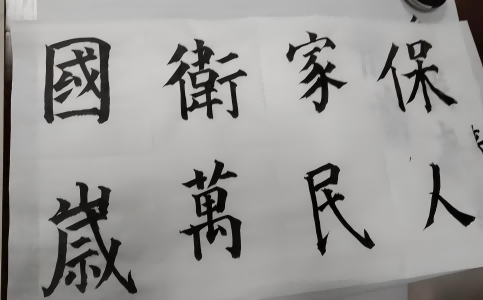 保家衛國
人民萬歲